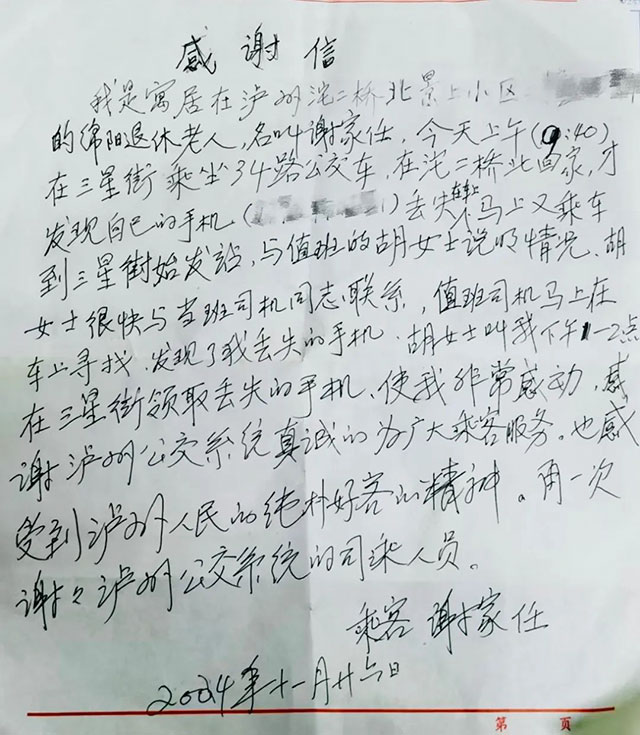 感谢信
我是寓居在泸州沱二桥北景上小区
的绵阳退休老人，名叫谢家任，今天上午(9:40)
在三星街乘坐34路公交车，在沱二桥北回家，才
发现自己的手机()丢失在车上，马上又乘车
到三星街始发站，与值班的胡女士说明情况、胡
女士很快与当班司机同志联系，值班司机马上在
车上寻找，发现了我丢失的手机，胡女士叫我下午1-2点
在三星街领取丢失的手机、使我非常感动，感
谢泸州公交系统真诚的为广大乘客服务。也感
受到泸州人民的纯朴好客的精神。再一次
谢々泸州公交系统的司乘人员。
乘客 谢家任
2024年十一月廿六日
第 页